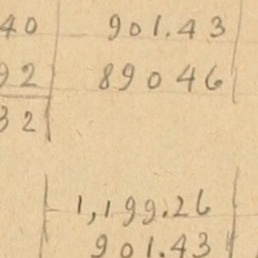 40 901.43
92 89046
32
1,199.26
901.43